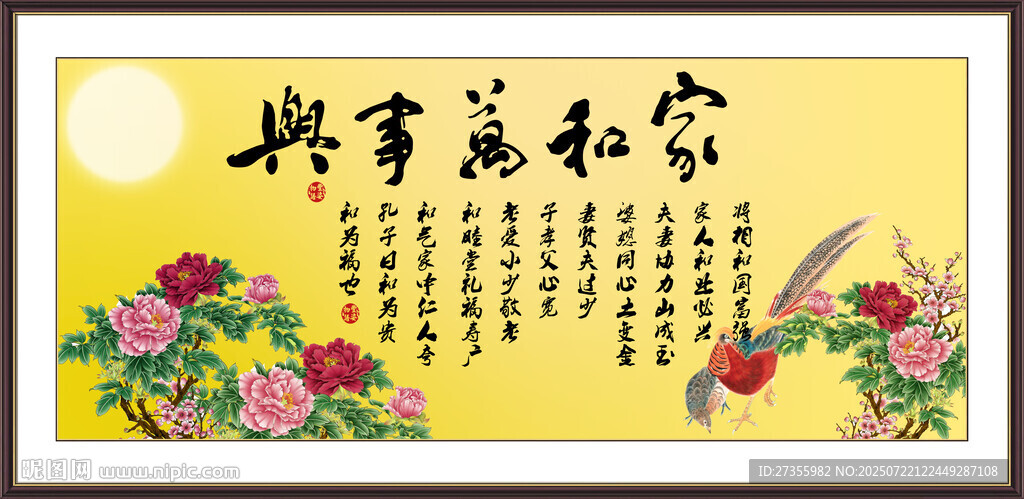 家和萬事興
将相和国富强
家人和业必兴
夫妻协力山成玉
婆媳同心土变金
妻贤夫过少
子孝父心宽
老爱小少敬老
和睦堂礼福寿广
和气家中仁人夸
孔子曰和为贵
和为福也
昵图网 www.nipic.com
ID:27355982 NO:20250722122449287108